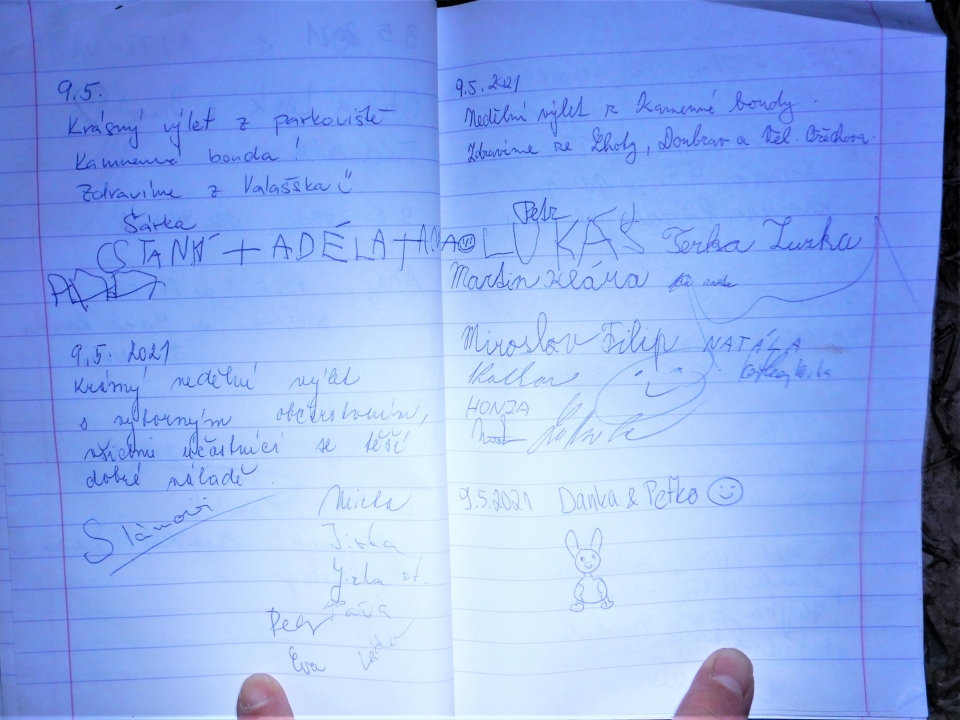 9.5.
Krásný výlet z parkoviště
Kamnenné bouda!
Zdravíme z Valašska
Šárka
STANÁ + ADÉLA + ANA
9.5. 2021
Krásný nedělní výlet
s výborným občerstvením,
všichni účastníci se těší
dobré náladě.
Slámovi
Mirka
Jirka
Jirka st.
Petr Páťa
Eva Láďa
9.5.2021
Nedělní výlet z Kamenné boudy.
Zdravíme ze Lhoty, Doubrav a Vel. Ořechova.
Petr
LUKÁŠ Terka Zuzka
Martin Klára
Miroslav Filip NATÁLA
HONZA
9.5.2021 Danka & Peťko